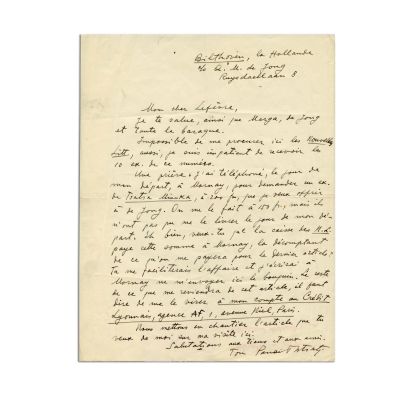 Bilthoven, la Hollande
c/o A. M. de Jong
Ruysdaellaan 8
Mon cher Lefèvre,
Je te salue, ainsi que Marga, de Jong
et toute la baraque.
Impossible de me procurer ici les Nouvelles
Litt, aussi, je suis impatient de recevoir les
10 ex. de ce numéro.
Une prière: j'ai téléphoné, le jour de
mon départ, à Mornay, pour demander un ex.
de Tsatsa Minnka, à 200 fr, que je veux offrir
à de Jong. On me le fait à 100 fr, mais ils
n'ont pas pu me le livrer le jour de mon dé-
part. Eh bien, veux-tu que la caisse des N.L.
paye cette somme à Mornay, la décomptant
de ce qu'on me payera pour le dernier article?
Tu me faciliterais l'affaire et j'écrirai à
Mornay de m'envoyer ici le bouquin. Le reste
de ce que me reviendra de cet article, il faut
dire de me le virer à mon compte au Crédit
Lyonnais, agence AF, 1, avenue Niel, Paris.
Nous mettons en chantier l'article que tu
veux de moi sur ma visite ici.
Salutations aux tiens et aux amis.
Ton Panait Istrati